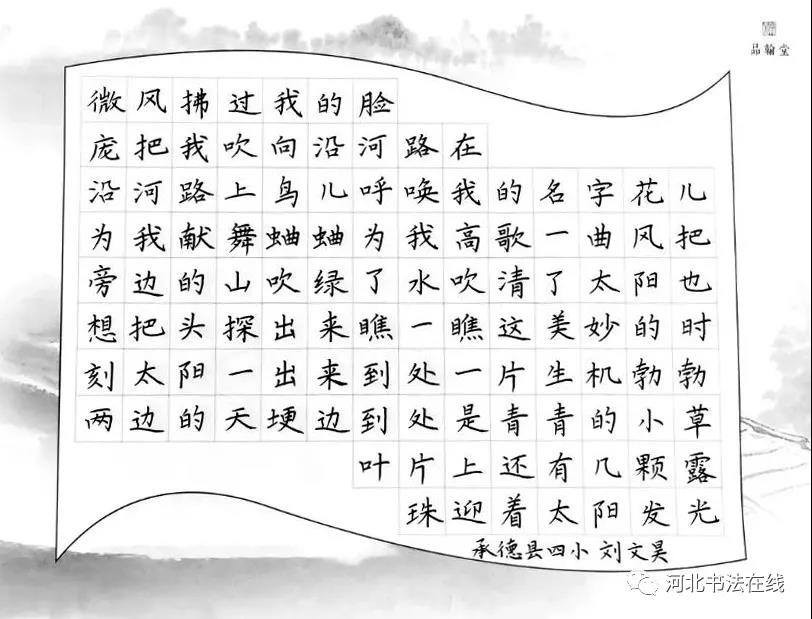 品翰堂
微风拂过我的脸
庞把我吹向沿河路在
沿河路上鸟儿呼唤我的名字花儿
为我献舞蛐蛐为我高歌一曲风把
旁边的山吹绿了水吹清了太阳也
想把头探出来瞧一瞧这美妙的时
刻太阳一出来到处一片生机勃勃
两边的天埂边到处是青青的小草
叶片上还有几颗露
珠迎着太阳发光
承德县四小 刘文昊
河北书法在线